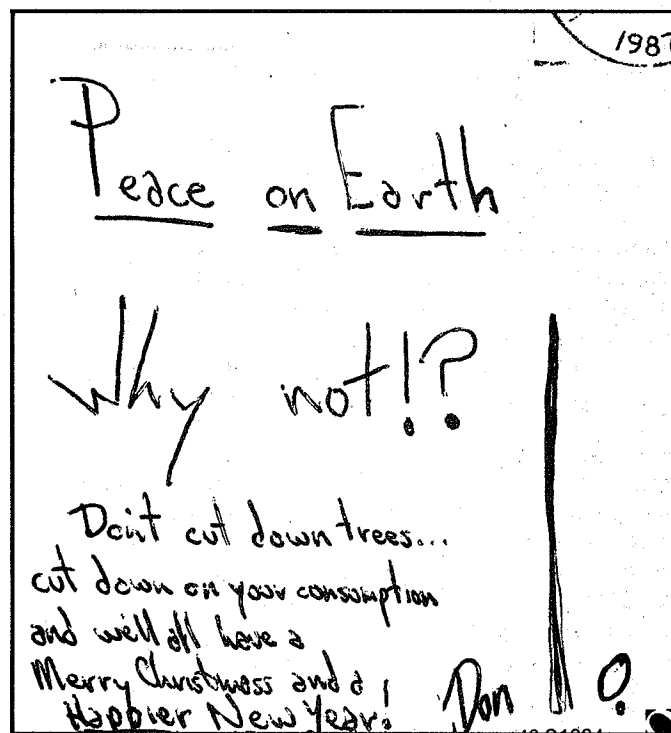 1987
Peace on Earth
Why not!?
Don't cut down trees...
cut down on your consumption
and we'll all have a
Merry Christmass and a
Happier New Year!
Don